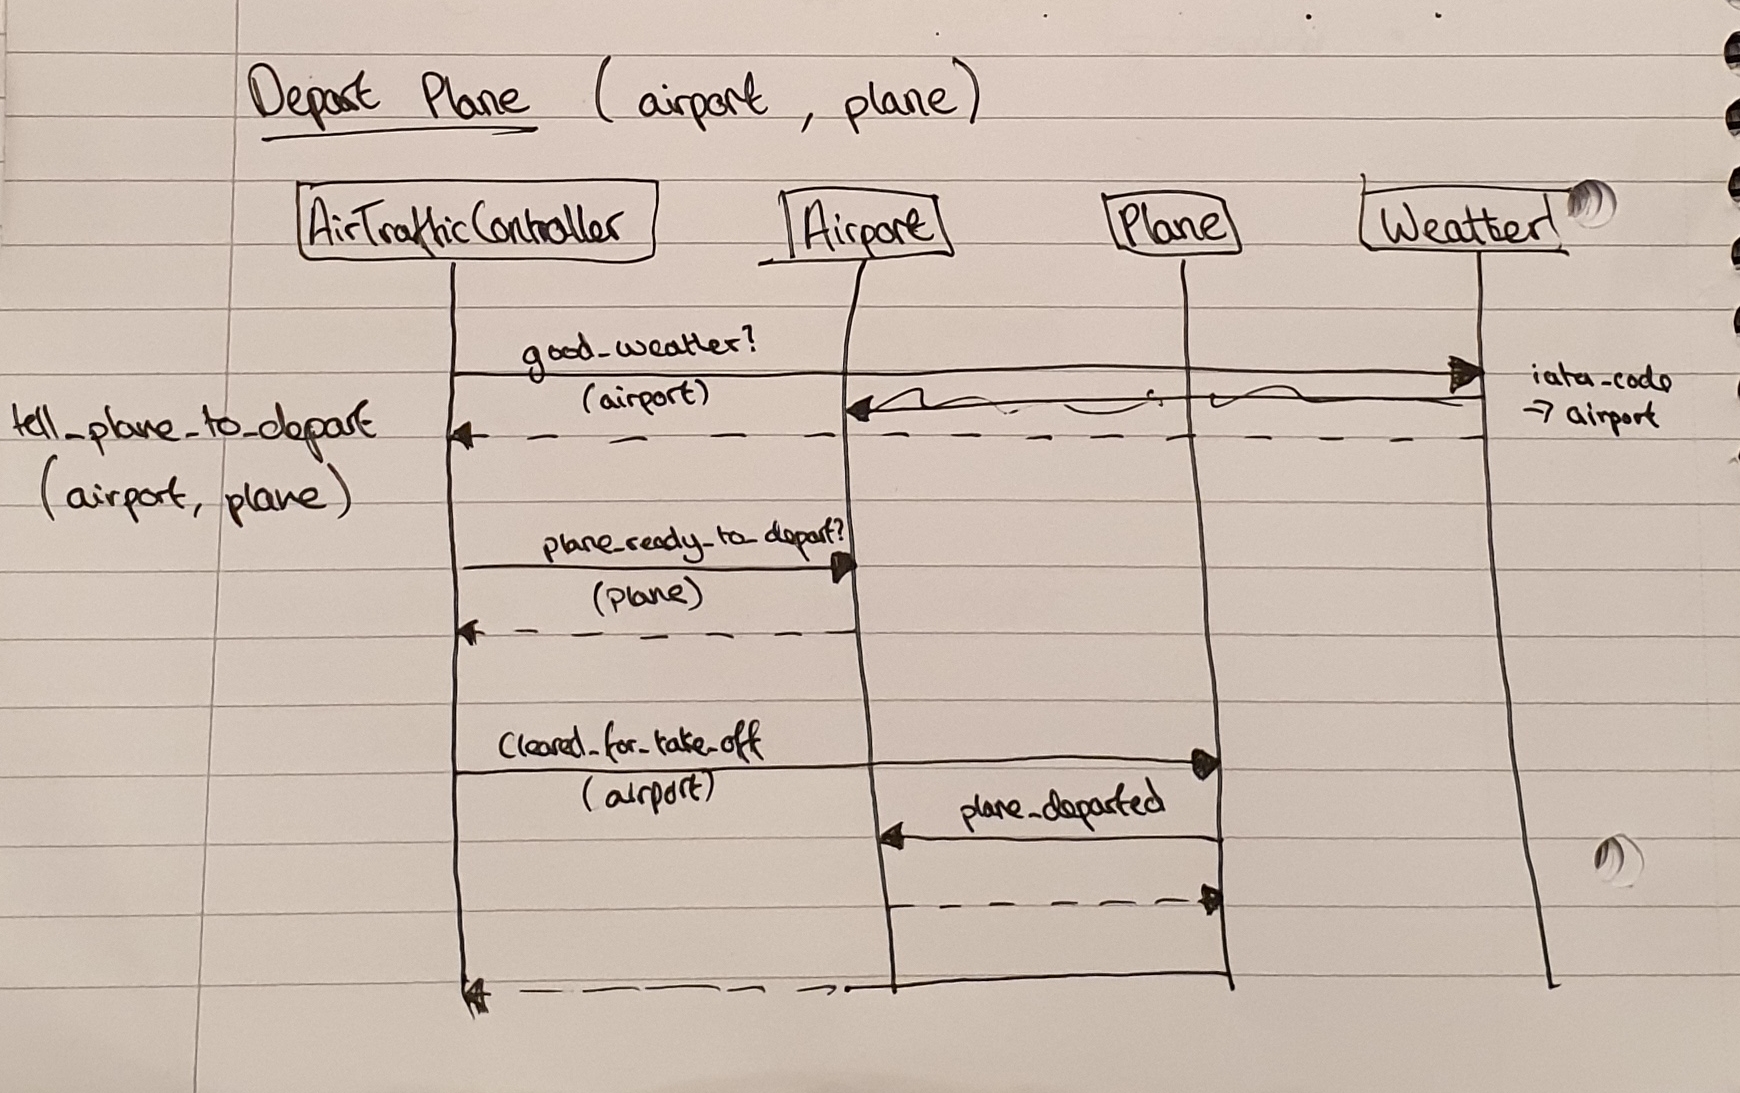 Depart Plane (airport, plane)
AirTrafficController
Airport
Plane
Weather
good_weather?
(airport)
iata_code
→ airport
tell_plane_to_depart
(airport, plane)
plane_ready_to_depart?
(plane)
Cleared_for_take_off
(airport)
plane_departed